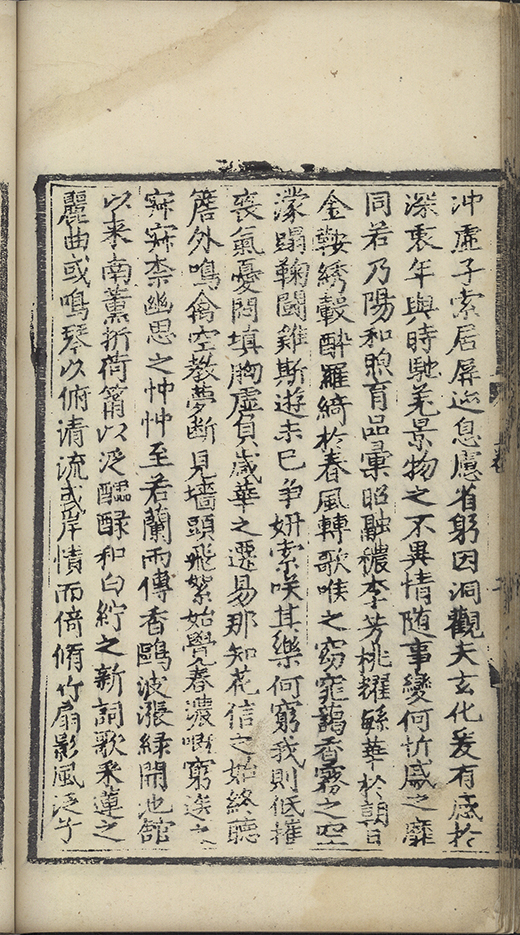 冲虛子索居屏迹息慮省躬因洞觀夫玄化爰有感於
深衷年與時馳羌景物之不異情随事變何忻慼之靡
同若乃陽和煦育品彙昭融穠李芳桃耀鲜華於朝日
金鞍綉轂酔羅綺於春風轉歌喉之窈窕藹香霧之空
濛蹋鞠鬪雞斯遊未已争妍索咲其樂何窮我則低摧
喪氣憂悶填胸虚負歲華之遷易那知花信之始終聴
簷外鳴禽空教夢斷見墻頭飛絮始覺春濃嗟窮迷之
寂寂柰幽思之忡忡至若蘭雨傳香鷗波漲緑開池舘
以来南薰折荷筩以泛醽醁和白紵之新詞歌采蓮之
麗曲或鳴琴以俯清流或岸幘而倚脩竹扇影風泛子
上卷